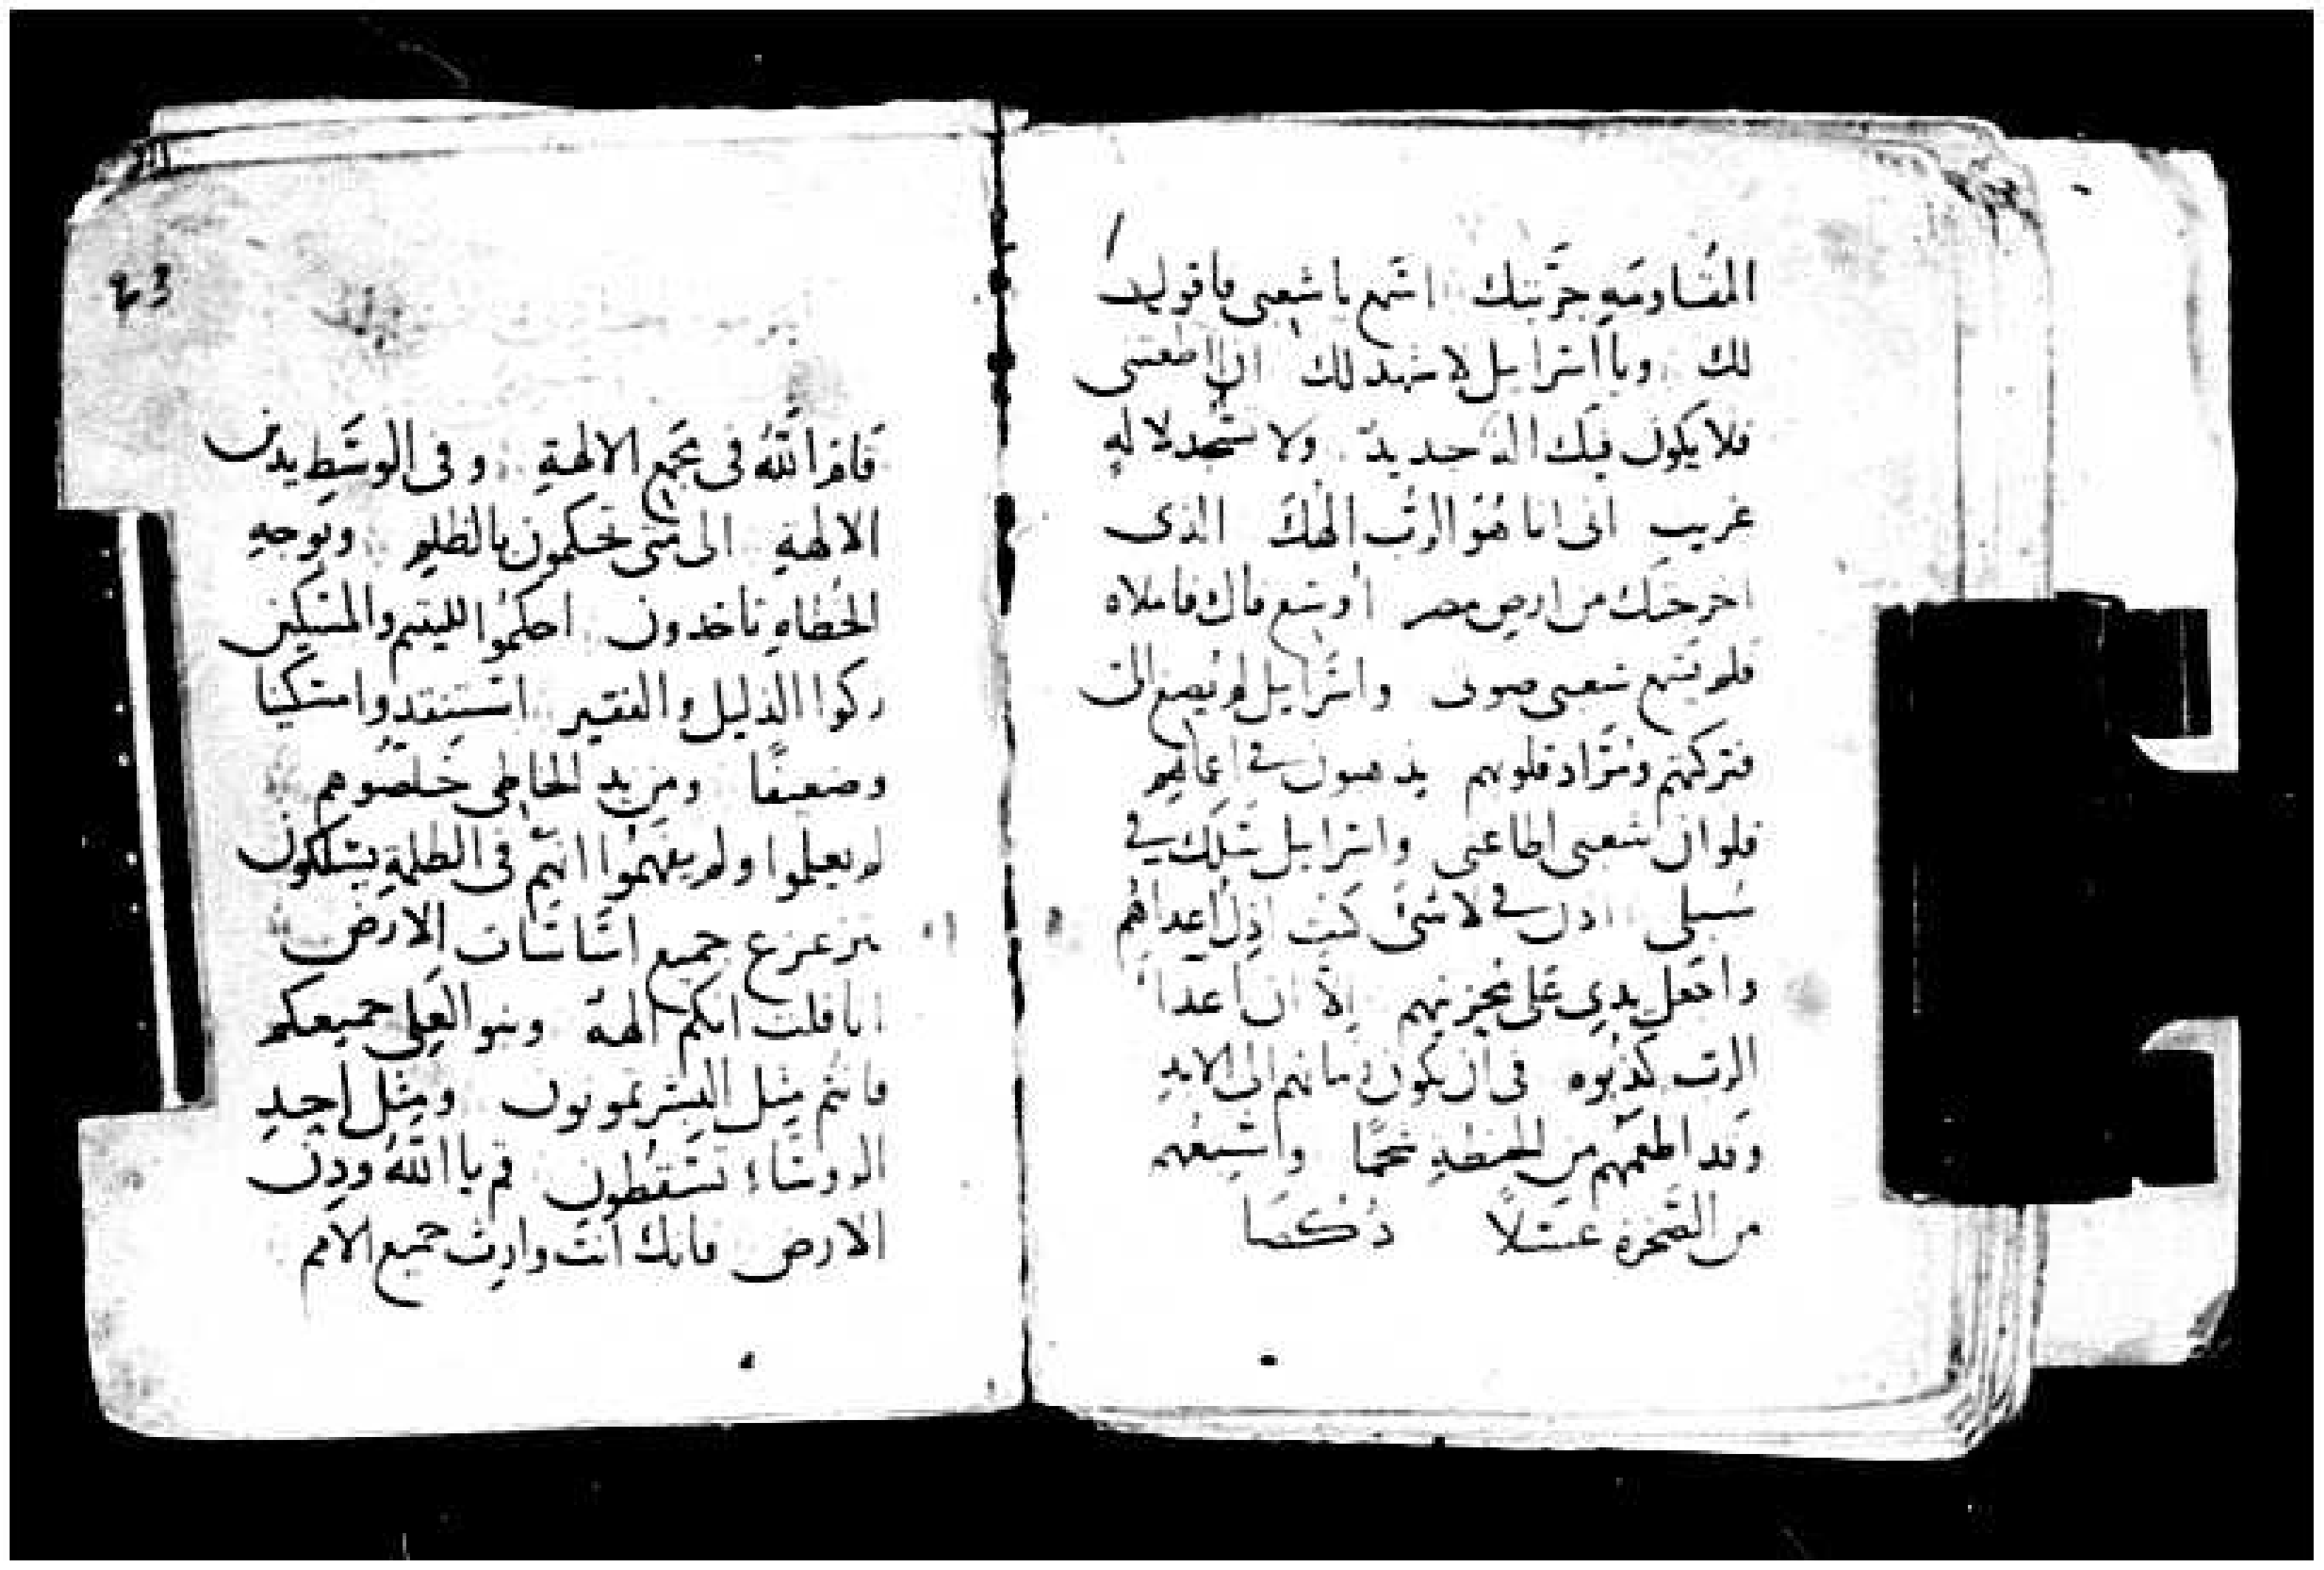 المقاومه جربتك اسمع يا شعبى فاقول
لك ويا اسرايل لاشهد لك ان اطعتنى
فلا يكون فيك اله جديد ولا تسجد لاله
غريب انى انا هو الرب الهك الذى
اخرجتك من ارض مصر أوسع فاك فاملاه
فلم يسمع شعبى صوتى واسرايل لم يصغ الى
فتركتهم ومراد قلوبهم يذهبون فى اعمالهم
فلو ان شعبى اطاعنى واسرايل سلك فى
سبلى اذن فى لا شى كنت اذل اعداهم
واجعل يدى على محزنيهم إلا ان اعدا
الرب كذبوه فى أن يكون زمانهم الى الابد
وقد اطعمهم من الحنطه شحما واشبعهم
من الصخره عسلاً ذكصا
63
قام الله فى مجمع الالهة وفى الوسط يدين
الالهة الى متى تحكمون بالظلم وتوجه
الخطاه تاخدون احكموا لليتيم والمسكين
زكوا الذليل والفقير استنقدوا مسكينا
وضعيفا ومن يد الخاطى خلصوهم
لم يعلموا ولم يفهموا انهم فى الظلمة يسلكون
تتزعزع جميع اساسات الارض
انا قلت انكم الهة وبنو العلى جميعكم
فانتم مثل البشر تموتون ومثل احد
الروسا تسقطون قم يا الله ودن
الارض فانك أنت وارث جميع الامم